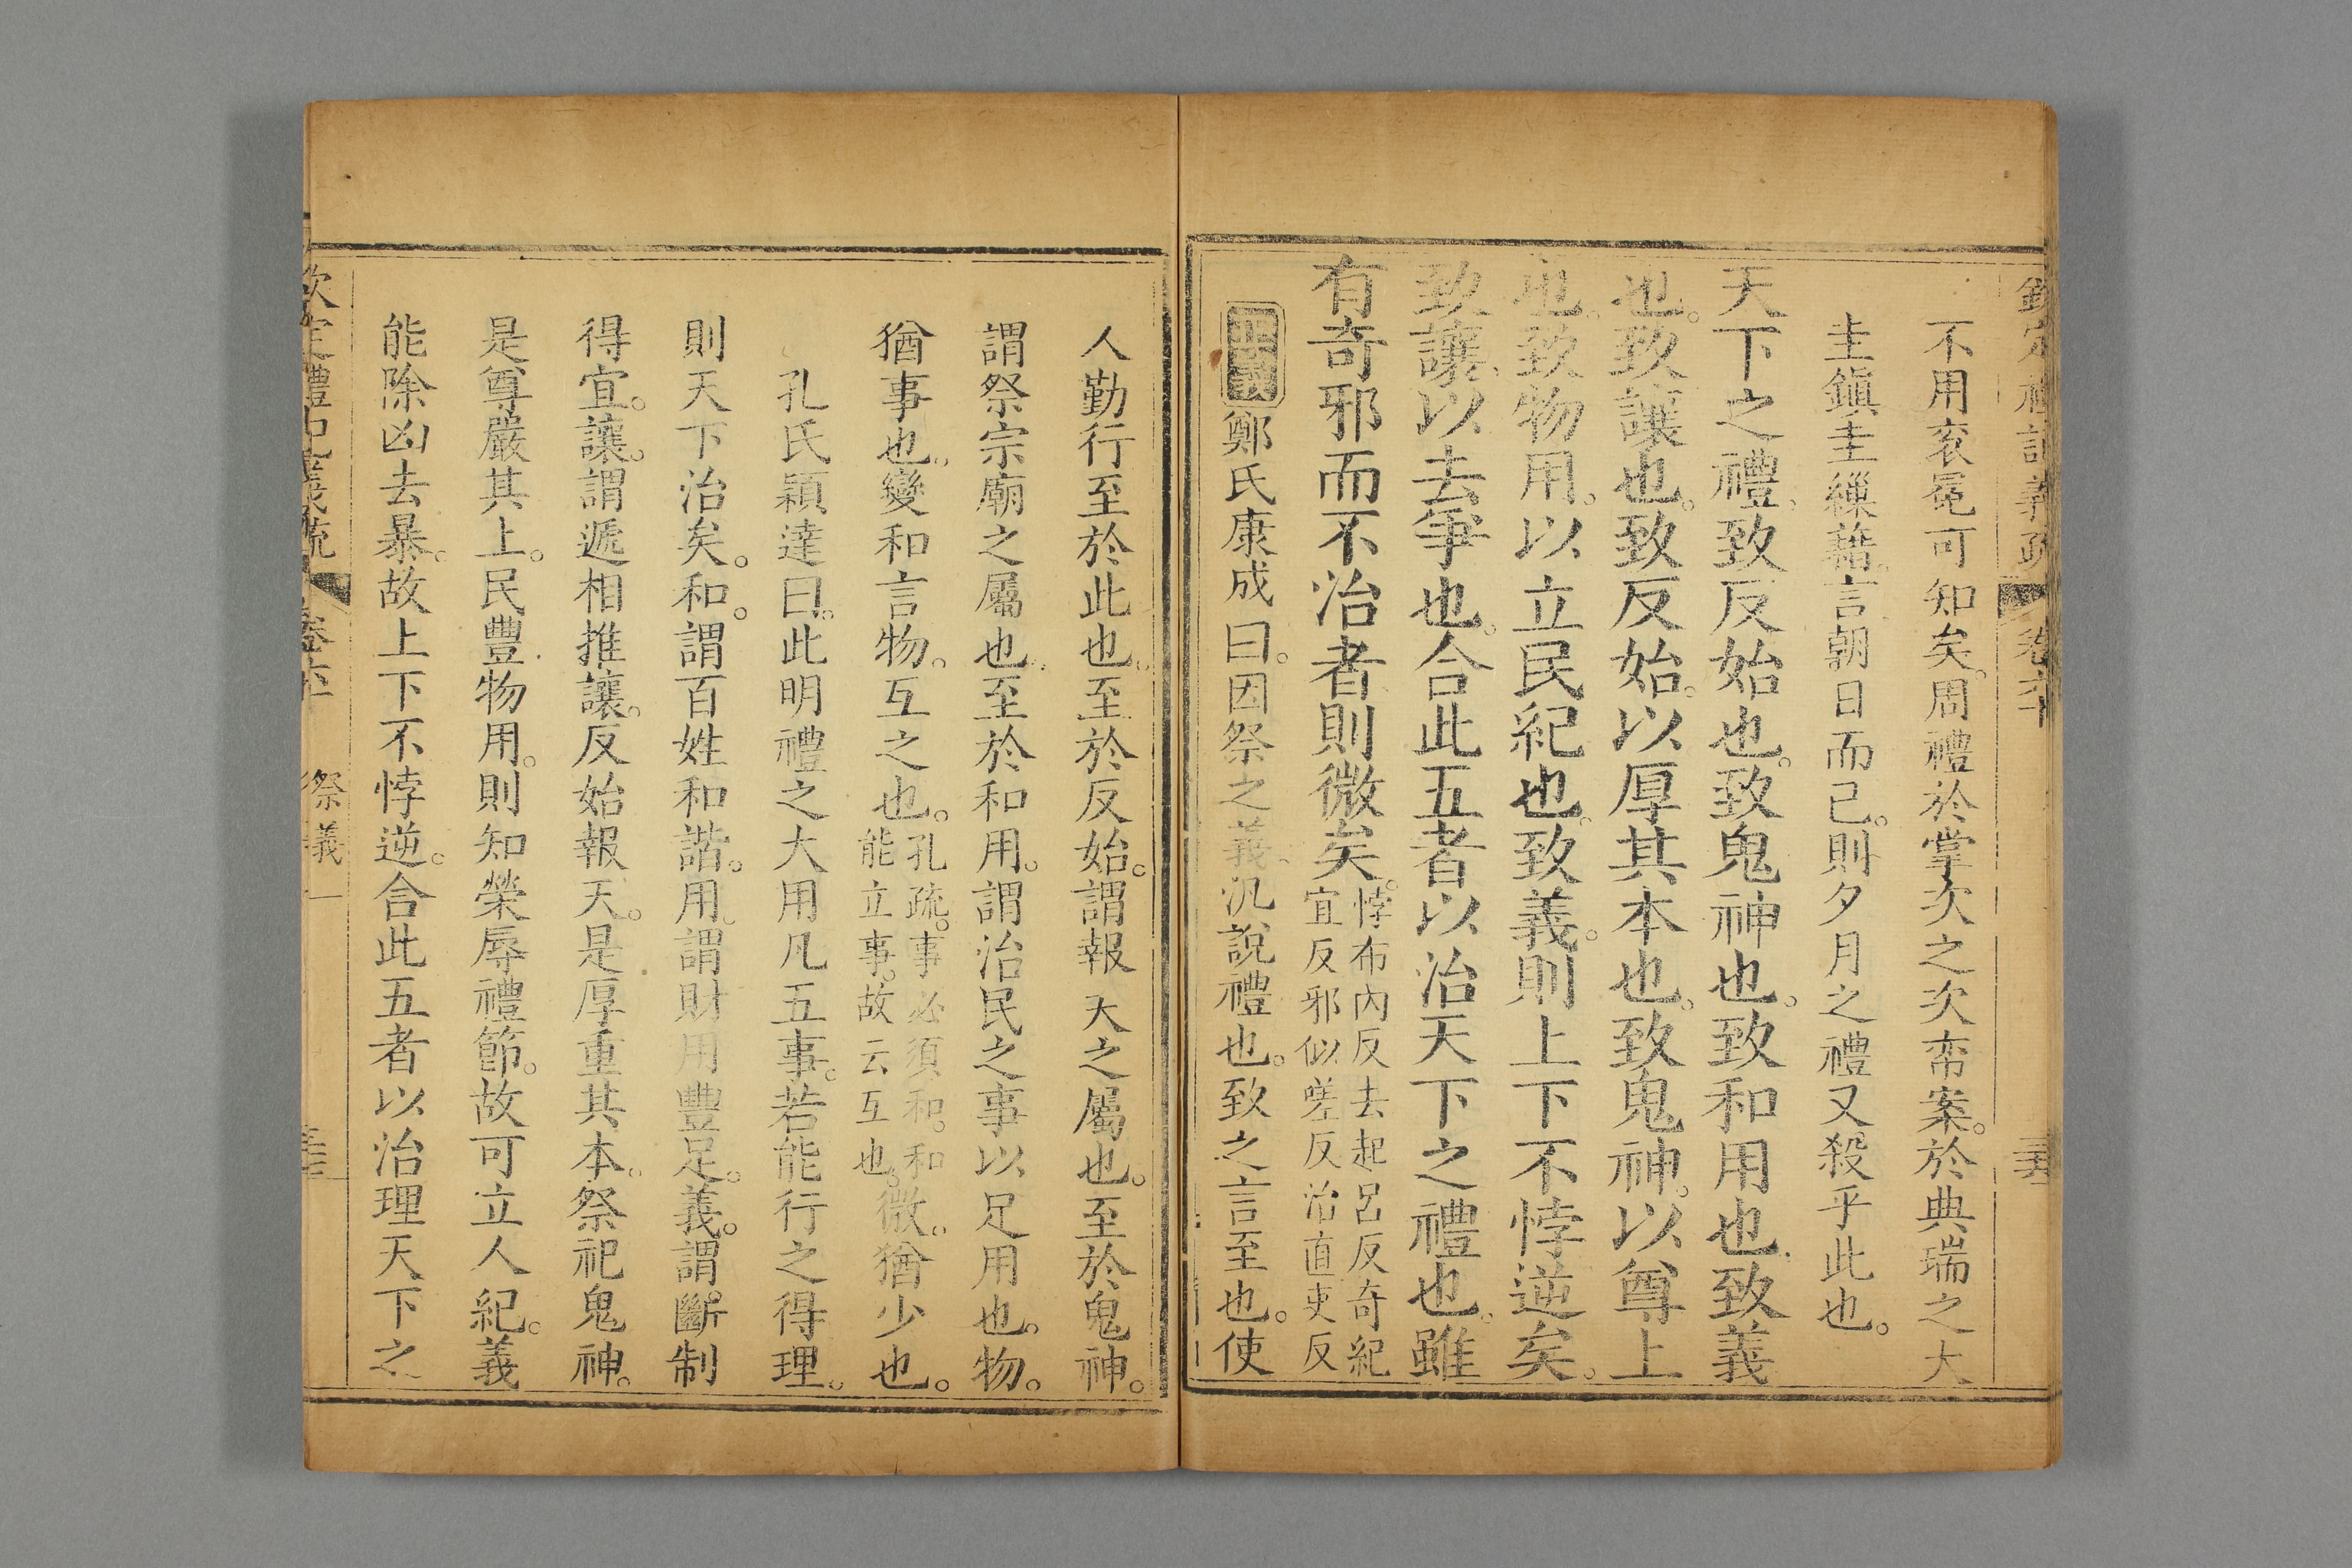 不用袞冕可知矣。周禮於掌次之次帟案。於典瑞之大
圭鎮圭繅藉。言朝日而已。則夕月之禮又殺乎此也。
天下之禮。致反始也。致鬼神也。致和用也。致義
也。致讓也。致反始。以厚其本也。致鬼神。以尊上
也。致物用。以立民紀也。致義。則上下不悖逆矣。
致讓。以去爭也。合此五者。以治天下之禮也。雖
有奇邪而不治者則微矣。悖布內反去起呂反奇紀
宜反邪似嗟反治直吏反
鄭氏康成曰。因祭之義。汎說禮也。致之言至也。使
人勤行至於此也。至於反始。謂報天之屬也。至於鬼神。
謂祭宗廟之屬也。至於和用。謂治民之事以足用也。物。
猶事也。變和言物。互之也。孔疏。事必須和。和
能立事。故云互也。微。猶少也。
孔氏穎達曰。此明禮之大用凡五事。若能行之得理。
則天下治矣。和。謂百姓和諧。用。謂財用豐足。義。謂斷制
得宜。讓。謂遞相推讓。反始報天。是厚重其本。祭祀鬼神。
是尊嚴其上。民豐物用。則知榮辱禮節。故可立人紀。義
能除凶去暴。故上下不悖逆。合此五者以治理天下之
祭義一